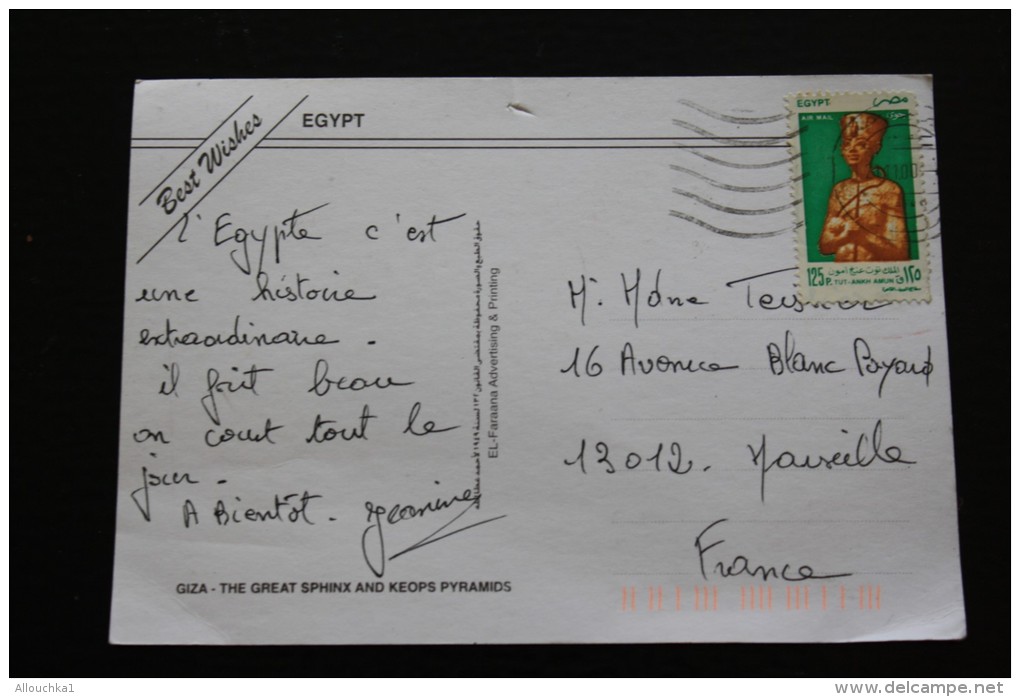 Best Wishes
EGYPT
EGYPT مصر
AIR MAIL
125 P. ١٢٥
الملك توت عنخ آمون
TUT-ANKH AMUN
l'Egypte c'est
une histoire
extraordinaire.
il fait beau
on court tout le
jour.
A Bientôt. Jeanine
EL-Faraana Advertising & Printing
Mr. Mdme
16 Avenue Blanc
13012. Marseille
France
GIZA - THE GREAT SPHINX AND KEOPS PYRAMIDS
Allouchka1
www.delcampe.net